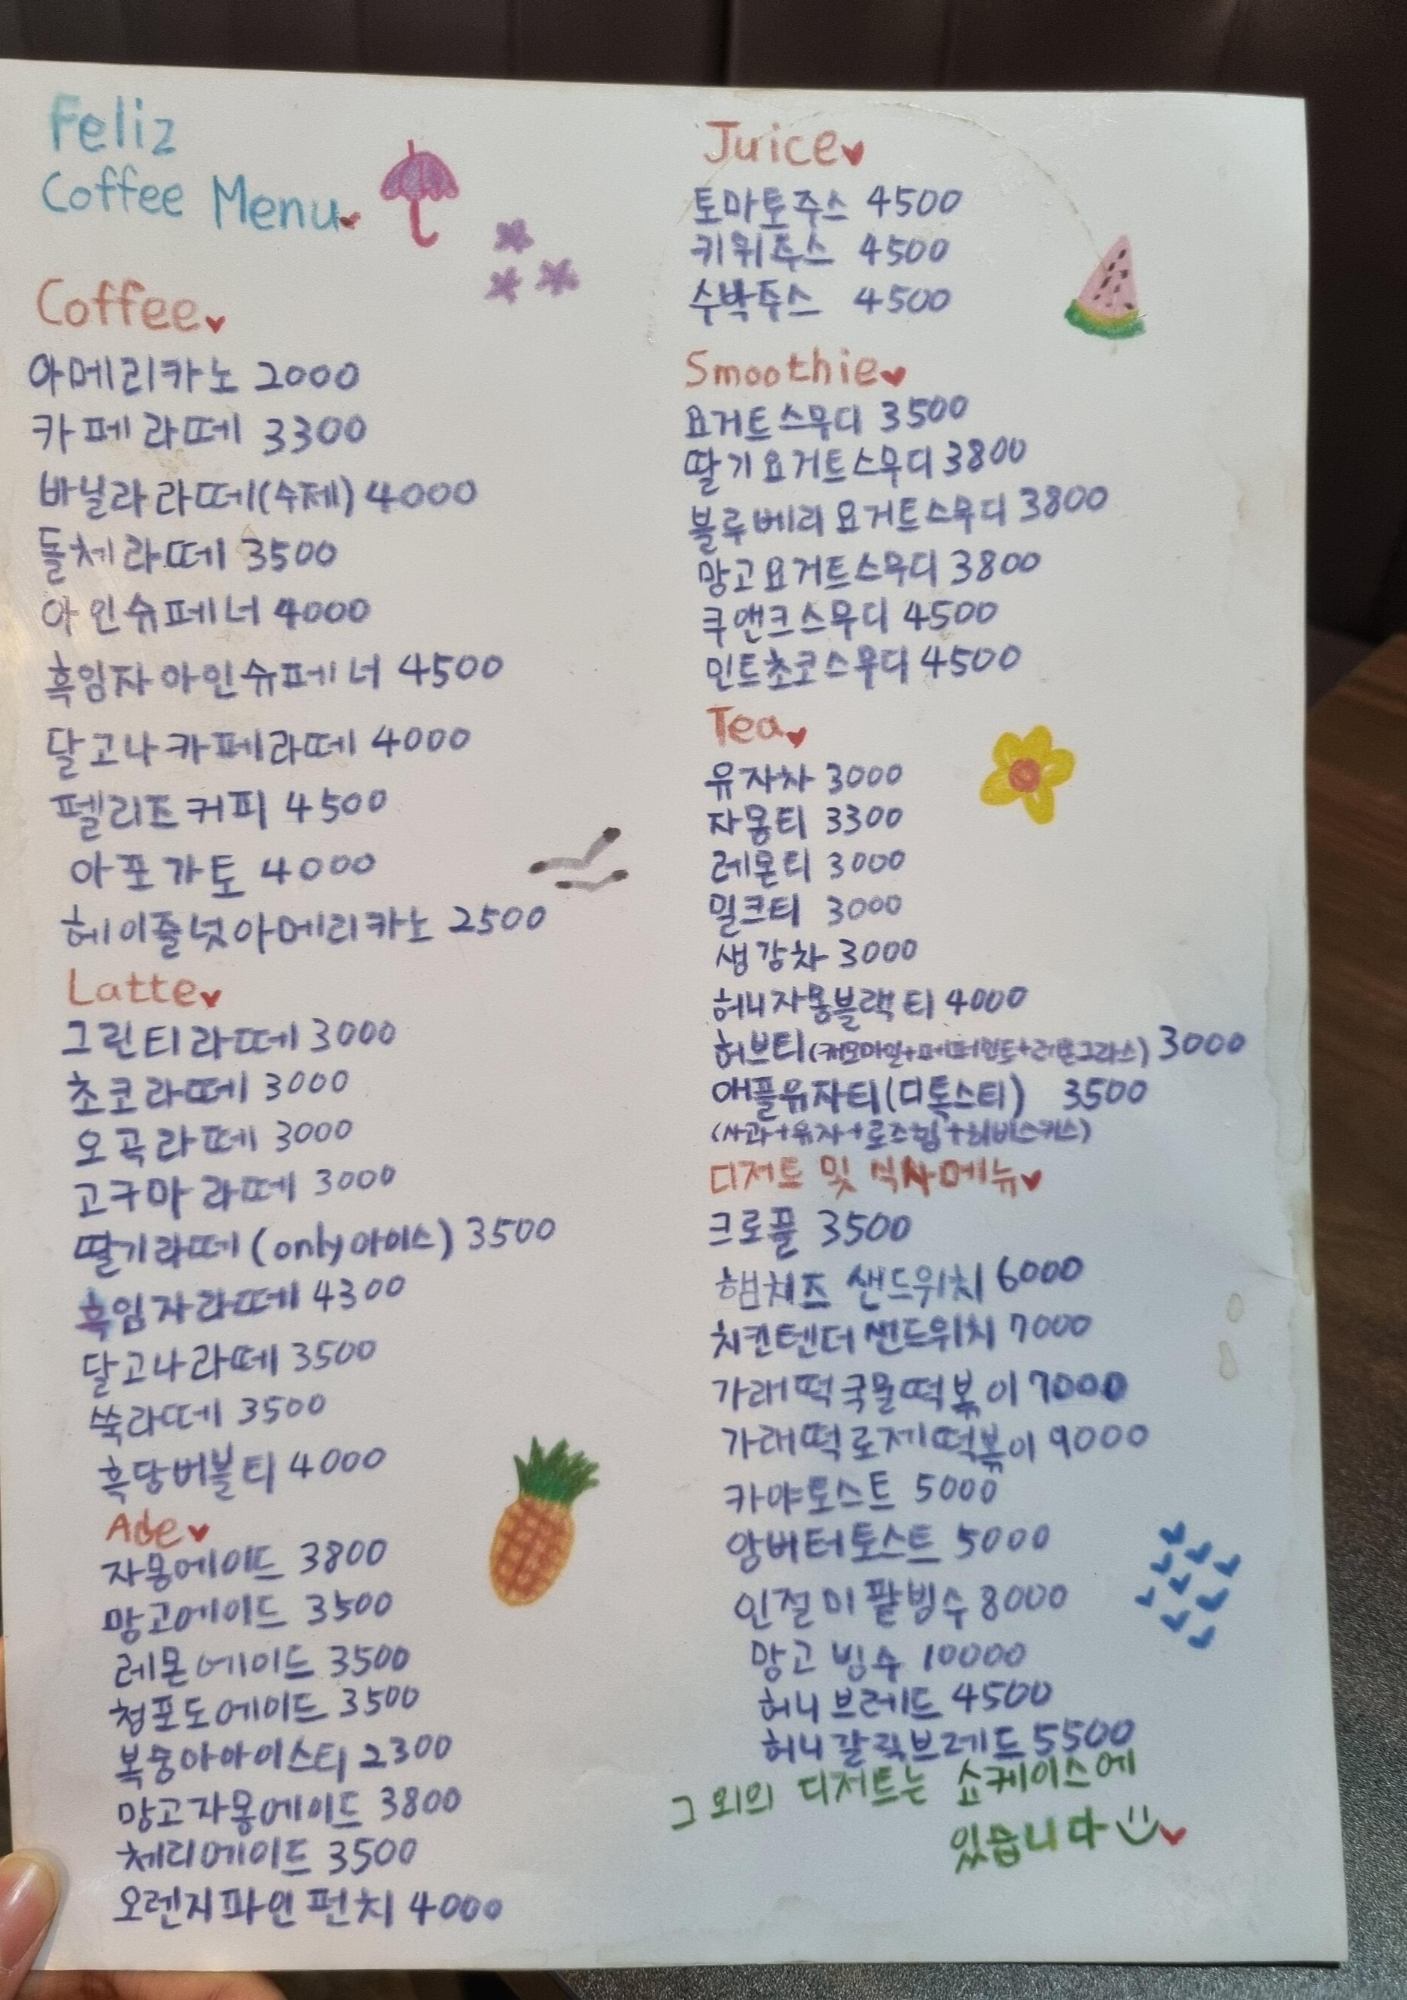 Feliz
Coffee Menu
Coffee
아메리카노 2000
카페라떼 3300
바닐라라떼(수제) 4000
돌체라떼 3500
아인슈페너 4000
흑임자아인슈페너 4500
달고나카페라떼 4000
펠리즈커피 4500
아포가토 4000
헤이즐넛아메리카노 2500
Latte
그린티라떼 3000
초코라떼 3000
오곡라떼 3000
고구마라떼 3000
딸기라떼 (only아이스) 3500
흑임자라떼 4300
달고나라떼 3500
쑥라떼 3500
흑당버블티 4000
Ade
자몽에이드 3800
망고에이드 3500
레몬에이드 3500
청포도에이드 3500
복숭아아이스티 2300
망고자몽에이드 3800
체리에이드 3500
오렌지파인펀치 4000
Juice
토마토주스 4500
키위주스 4500
수박주스 4500
Smoothie
요거트스무디 3500
딸기요거트스무디 3800
블루베리요거트스무디 3800
망고요거트스무디 3800
쿠앤크스무디 4500
민트초코스무디 4500
Tea
유자차 3000
자몽티 3300
레몬티 3000
밀크티 3000
생강차 3000
허니자몽블랙티 4000
허브티(캐모마일+페퍼민트+레몬그라스) 3000
애플유자티(디톡스티) 3500
(사과+유자+로즈힙+히비스커스)
디저트 및 식사메뉴
크로플 3500
햄치즈 샌드위치 6000
치킨텐더 샌드위치 7000
가래떡국물떡볶이 7000
가래떡로제떡볶이 9000
카야토스트 5000
앙버터토스트 5000
인절미팥빙수 8000
망고 빙수 10000
허니브레드 4500
허니갈릭브레드 5500
그 외의 디저트는 쇼케이스에
있습니다